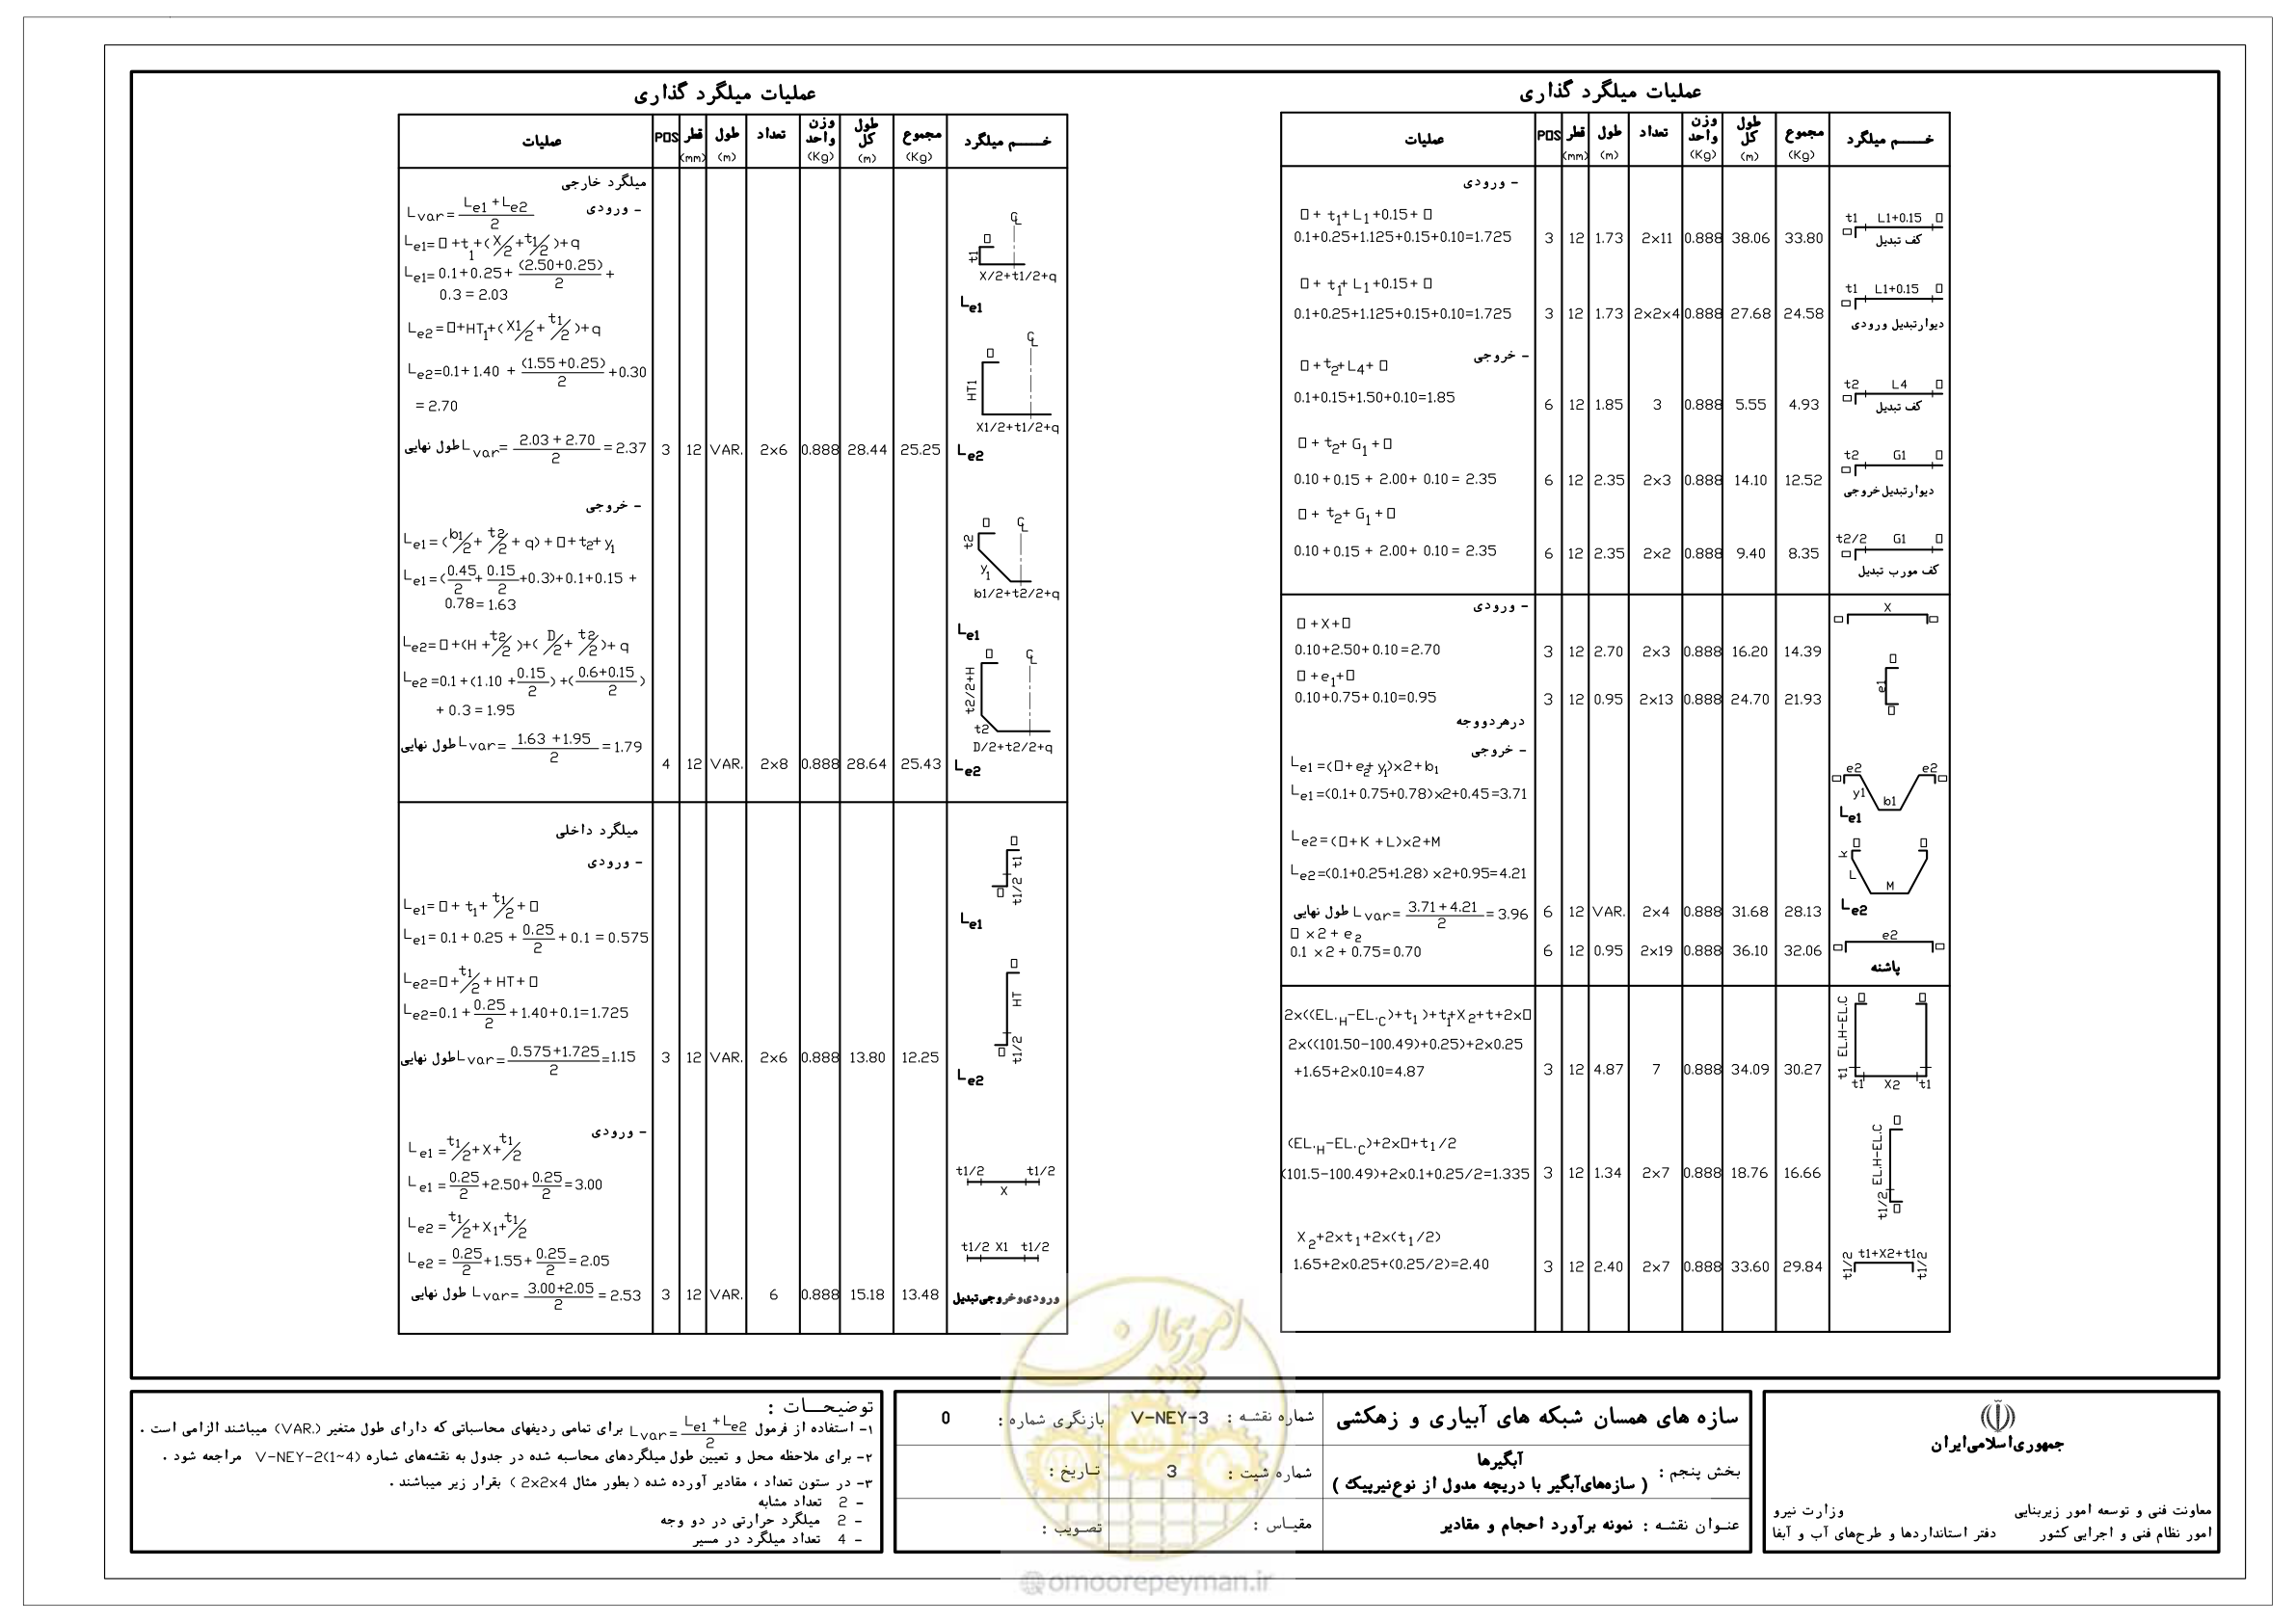 عملیات میلگرد گذاری
خــــم میلگرد | مجموع (Kg) | طول کل (m) | وزن واحد (Kg) | تعداد | طول (m) | قطر (mm) | POS | عملیات
- ورودی
□ + t1+ L1 +0.15+ □
0.1+0.25+1.125+0.15+0.10=1.725 3 12 1.73 2x11 0.888 38.06 33.80
t1 L1+0.15 □
□ کف تبدیل
□ + t1+ L1 +0.15+ □
0.1+0.25+1.125+0.15+0.10=1.725 3 12 1.73 2x2x4 0.888 27.68 24.58
t1 L1+0.15 □
□ دیوارتبدیل ورودی
- خروجی
□ + t2+L4+ □
0.1+0.15+1.50+0.10=1.85 6 12 1.85 3 0.888 5.55 4.93
t2 L4 □
□ کف تبدیل
□ + t2+ G1 +□
0.10 +0.15 + 2.00+ 0.10 = 2.35 6 12 2.35 2x3 0.888 14.10 12.52
t2 G1 □
□ دیوارتبدیل خروجی
□ + t2+ G1 +□
0.10 +0.15 + 2.00+ 0.10 = 2.35 6 12 2.35 2x2 0.888 9.40 8.35
t2/2 G1 □
□ کف مورب تبدیل
- ورودی
□ +X+□
0.10+2.50+0.10=2.70 3 12 2.70 2x3 0.888 16.20 14.39
□ X □
□ +e1+□
0.10+0.75+0.10=0.95 3 12 0.95 2x13 0.888 24.70 21.93
□ e1 □
درهردووجه
- خروجی
Le1 =(□+e2+y1)x2+b1
Le1 =(0.1+0.75+0.78)x2+0.45=3.71
□ e2 e2 □
y1 b1
Le1
Le2=(□+K +L)x2+M
Le2=(0.1+0.25+1.28) x2+0.95=4.21
□ □
k L M
Le2
طول نهایی Lvar= (3.71+4.21)/2 = 3.96 6 12 VAR. 2x4 0.888 31.68 28.13
□ x2 + e2
0.1 x2 + 0.75=0.70 6 12 0.95 2x19 0.888 36.10 32.06
□ e2 □
پاشنه
2x((EL.H-EL.C)+t1)+t1+X2+t+2x□
2x((101.50-100.49)+0.25)+2x0.25
+1.65+2x0.10=4.87 3 12 4.87 7 0.888 34.09 30.27
□ □
t1 EL.H-EL.C
t1 X2 t1
(EL.H-EL.C)+2x□+t1/2
(101.5-100.49)+2x0.1+0.25/2=1.335 3 12 1.34 2x7 0.888 18.76 16.66
□ t1/2 EL.H-EL.C □
X2+2xt1+2x(t1/2)
1.65+2x0.25+(0.25/2)=2.40 3 12 2.40 2x7 0.888 33.60 29.84
t1/2 t1+X2+t1 t1/2
عملیات میلگرد گذاری
خــــم میلگرد | مجموع (Kg) | طول کل (m) | وزن واحد (Kg) | تعداد | طول (m) | قطر (mm) | POS | عملیات
میلگرد خارجی
- ورودی
Lvar= (Le1 +Le2)/2
Le1= □ +t1+(X/2+t1/2)+q
Le1= 0.1+0.25+ (2.50+0.25)/2 +
0.3 = 2.03
□ CL
t1 X/2+t1/2+q
Le1
Le2=□+HT1+(X1/2+ t1/2)+q
Le2=0.1+1.40 + (1.55+0.25)/2 +0.30
= 2.70
□ CL
HT1
X1/2+t1/2+q
طول نهایی Lvar= (2.03 + 2.70)/2 = 2.37 3 12 VAR. 2x6 0.888 28.44 25.25 Le2
- خروجی
Le1=(b1/2+ t2/2 + q) + □+t2+y1
Le1=(0.45/2+ 0.15/2+0.3)+0.1+0.15 +
0.78= 1.63
□ CL
t2 y1
b1/2+t2/2+q
Le1
Le2=□ +(H + t2/2 )+( D/2+ t2/2)+ q
Le2 =0.1 +(1.10 +0.15/2) +((0.6+0.15)/2)
+ 0.3 = 1.95
□ CL
t2/2+H
t2
D/2+t2/2+q
طول نهایی Lvar= (1.63 +1.95)/2 = 1.79
4 12 VAR. 2x8 0.888 28.64 25.43 Le2
میلگرد داخلی
- ورودی
Le1= □ + t1+ t1/2 + □
Le1= 0.1 + 0.25 + 0.25/2 + 0.1 = 0.575
□ t1/2 t1 □
Le1
Le2=□ + t1/2 + HT+ □
Le2=0.1 + 0.25/2 + 1.40+0.1=1.725
□ HT t1/2 □
طول نهایی Lvar= (0.575+1.725)/2 =1.15 3 12 VAR. 2x6 0.888 13.80 12.25
Le2
- ورودی
Le1 =t1/2+X+t1/2
Le1 = 0.25/2 +2.50+ 0.25/2 =3.00
t1/2 t1/2
X
Le2 =t1/2+X1+t1/2
Le2 = 0.25/2 +1.55+ 0.25/2 =2.05
t1/2 X1 t1/2
طول نهایی Lvar= (3.00+2.05)/2 = 2.53 3 12 VAR. 6 0.888 15.18 13.48 ورودی‌وخروجی‌تبدیل
جمهوری‌اسلامی‌ایران
معاونت فنی و توسعه امور زیربنایی
امور نظام فنی و اجرایی کشور
وزارت نیرو
دفتر استانداردها و طرح‌های آب و آبفا
سازه های همسان شبکه های آبیاری و زهکشی
بخش پنجم : آبگیرها
( سازه‌های‌آبگیر با دریچه مدول از نوع‌نیرپیک )
عنـوان نقشـه : نمونه برآورد احجام و مقادیر
شماره نقشـه : V-NEY-3
شماره شیت : 3
مقیـاس :
بازنگری شماره : 0
تـاریخ :
تصـویب :
توضیحــات :
۱- استفاده از فرمول Lvar= (Le1 +Le2)/2 برای تمامی ردیفهای محاسباتی که دارای طول متغیر (VAR.) میباشند الزامی است .
۲- برای ملاحظه محل و تعیین طول میلگردهای محاسبه شده در جدول به نقشه‌های شماره V-NEY-2(1~4) مراجعه شود .
۳- در ستون تعداد ، مقادیر آورده شده ( بطور مثال 2x2x4 ) بقرار زیر میباشند .
- 2 تعداد مشابه
- 2 میلگرد حرارتی در دو وجه
- 4 تعداد میلگرد در مسیر
امور پیمان
@omoorepeyman.ir